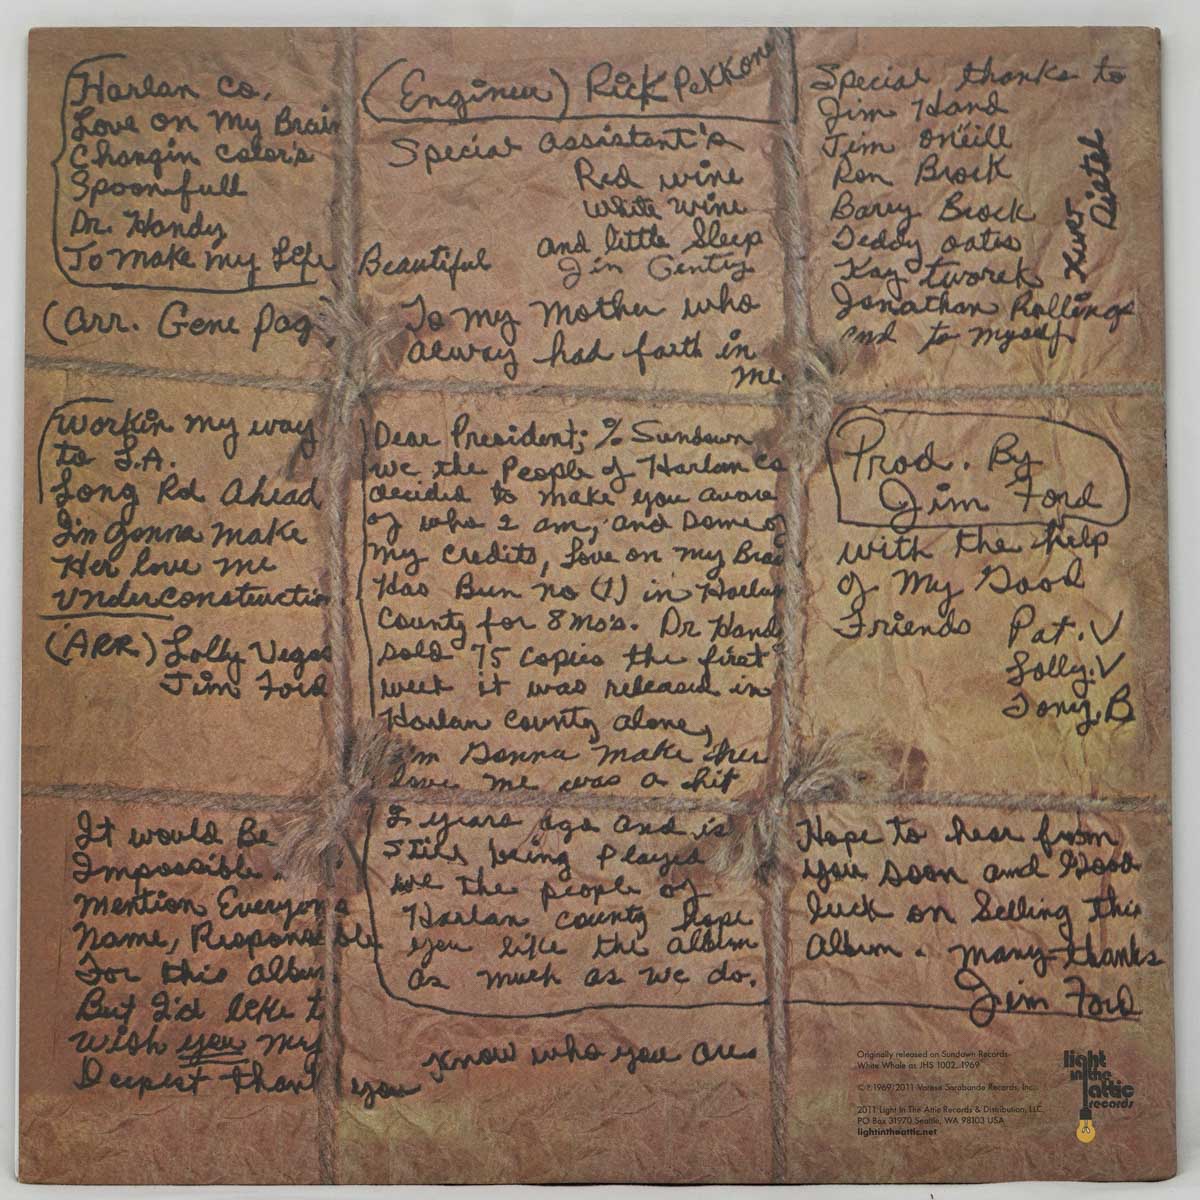 Harlan Co.
Love on my Brain
Changin Color's
Spoonfull
Dr. Handy
To make my Life Beautiful
(Arr. Gene Pag
(Engineer) Rick Pekkonen
Special assistant's
Red wine
White wine
and little Sleep
Jim Gentry
To my Mother who
alway had faith in
me.
Special thanks to
Jim Hand
Jim oneill
Ron Brock
Barry Brock
Teddy oats
Kay tworek
Jonathan Rollings
and to myself
Kurt
Distel
Workin my way
to L.A.
Long Rd Ahead
I'm gonna make
Her love me
Underconstruction
(ARR) Lolly Vegas
Jim Ford
Dear President; % Sundown
we the People of Harlan Co
decided to make you aware
of who I am, and some of
my credits, Love on my Brai
Has Been no (1) in Harlan
County for 8 Mo's. Dr Hand
sold 75 copies the first
week it was released in
Harlan County alone,
I'm Gonna make her
love me was a hit
2 years ago and is
still being played
we the people of
Harlan county hope
you like the album
as much as we do.
Prod. By
Jim Ford
with the help
of My Good
Friends
Pat. V
Lolly. V
Tony. B
It would Be
Impossible
mention Everyone
Name, Responsible
For this album
But I'd like t
wish you my
Deepest thank you
Know who you are
Hope to hear from
you soon and Good
luck on Selling this
Album. Many-thanks
Jim Ford
Originally released on Sundown Records-
White Whale as JHS 1002, 1969
©℗1969/2011 Varese Sarabande Records, Inc.
2011 Light In The Attic Records & Distribution, LLC.
PO Box 31970 Seattle, WA 98103 USA
lightintheattic.net
light
in the
attic
records